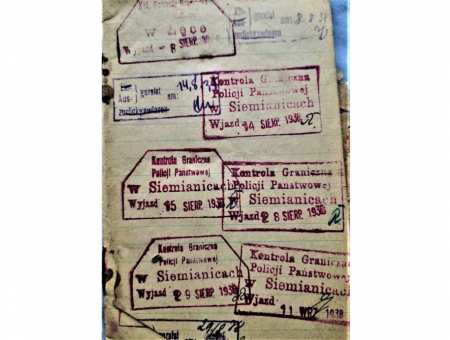 Wyjazd - 8 SIERP. 38
gereist am: 8.8.38
Aus- gereist am: 14.8.
Kontrola Graniczna
Policji Państwowej
w Siemianicach
Wjazd 14 SIERP. 1938
Kontrola Graniczna
Policji Państwowej
w Siemianicach
Wyjazd 15 SIERP. 1938
Kontrola Graniczna
Policji Państwowej
w Siemianicach
Wjazd 28 SIERP. 1938
Kontrola Graniczna
Policji Państwowej
w Siemianicach
Wyjazd 29 SIERP. 1938
Kontrola Graniczna
Policji Państwowej
w Siemianicach
Wjazd 11 WRZ. 1938